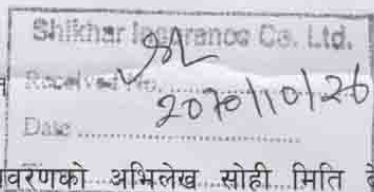 Shikhar Insurance Co. Ltd.
Received No. ............
2070/10/26
Date ............
वरणको अभिलेख सोही मिति